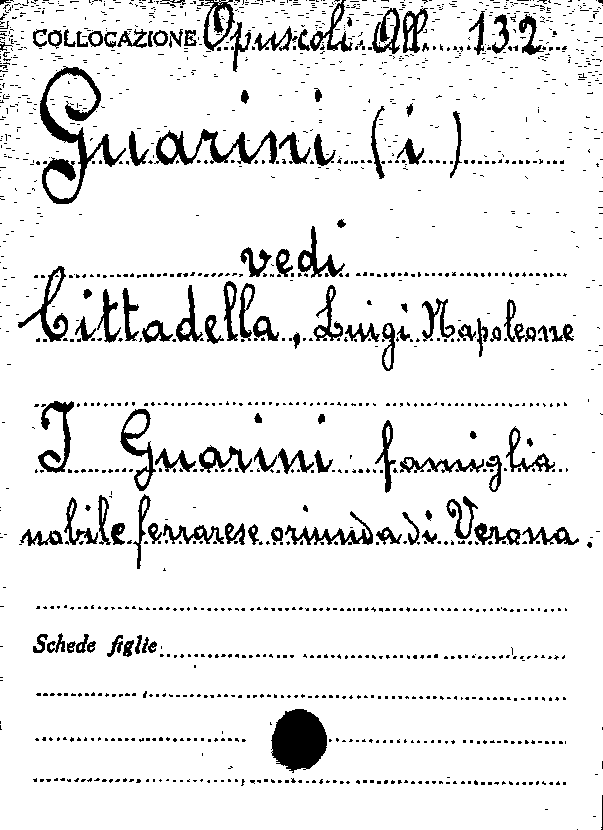 COLLOCAZIONE Opuscoli All. 132
Guarini (i)
vedi
Cittadella, Luigi Napoleone
I Guarini famiglia
nobile ferrarese oriunda di Verona.
Schede figlie